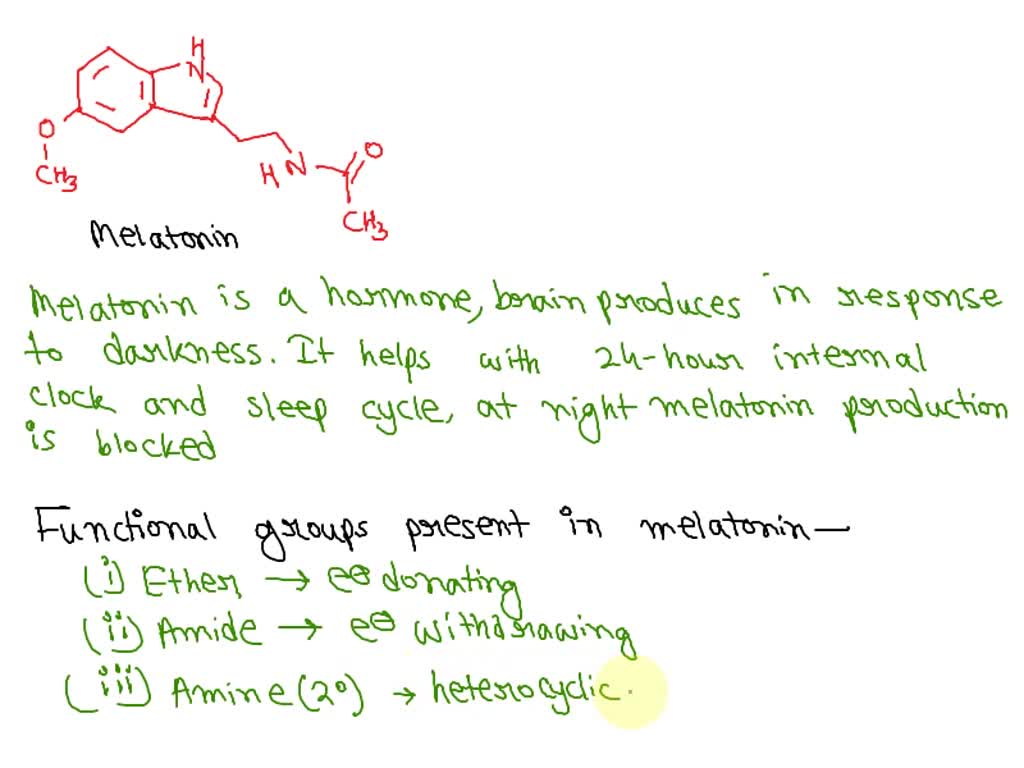 H
N
O
CH3
H N
O
CH3
Melatonin
Melatonin is a hormone, brain produces in response
to darkness. It helps with 24-hour internal
clock and sleep cycle, at night melatonin production
is blocked
Functional groups present in melatonin—
(i) Ether → e⊖ donating
(ii) Amide → e⊖ withdrawing
(iii) Amine (2°) → heterocyclic.